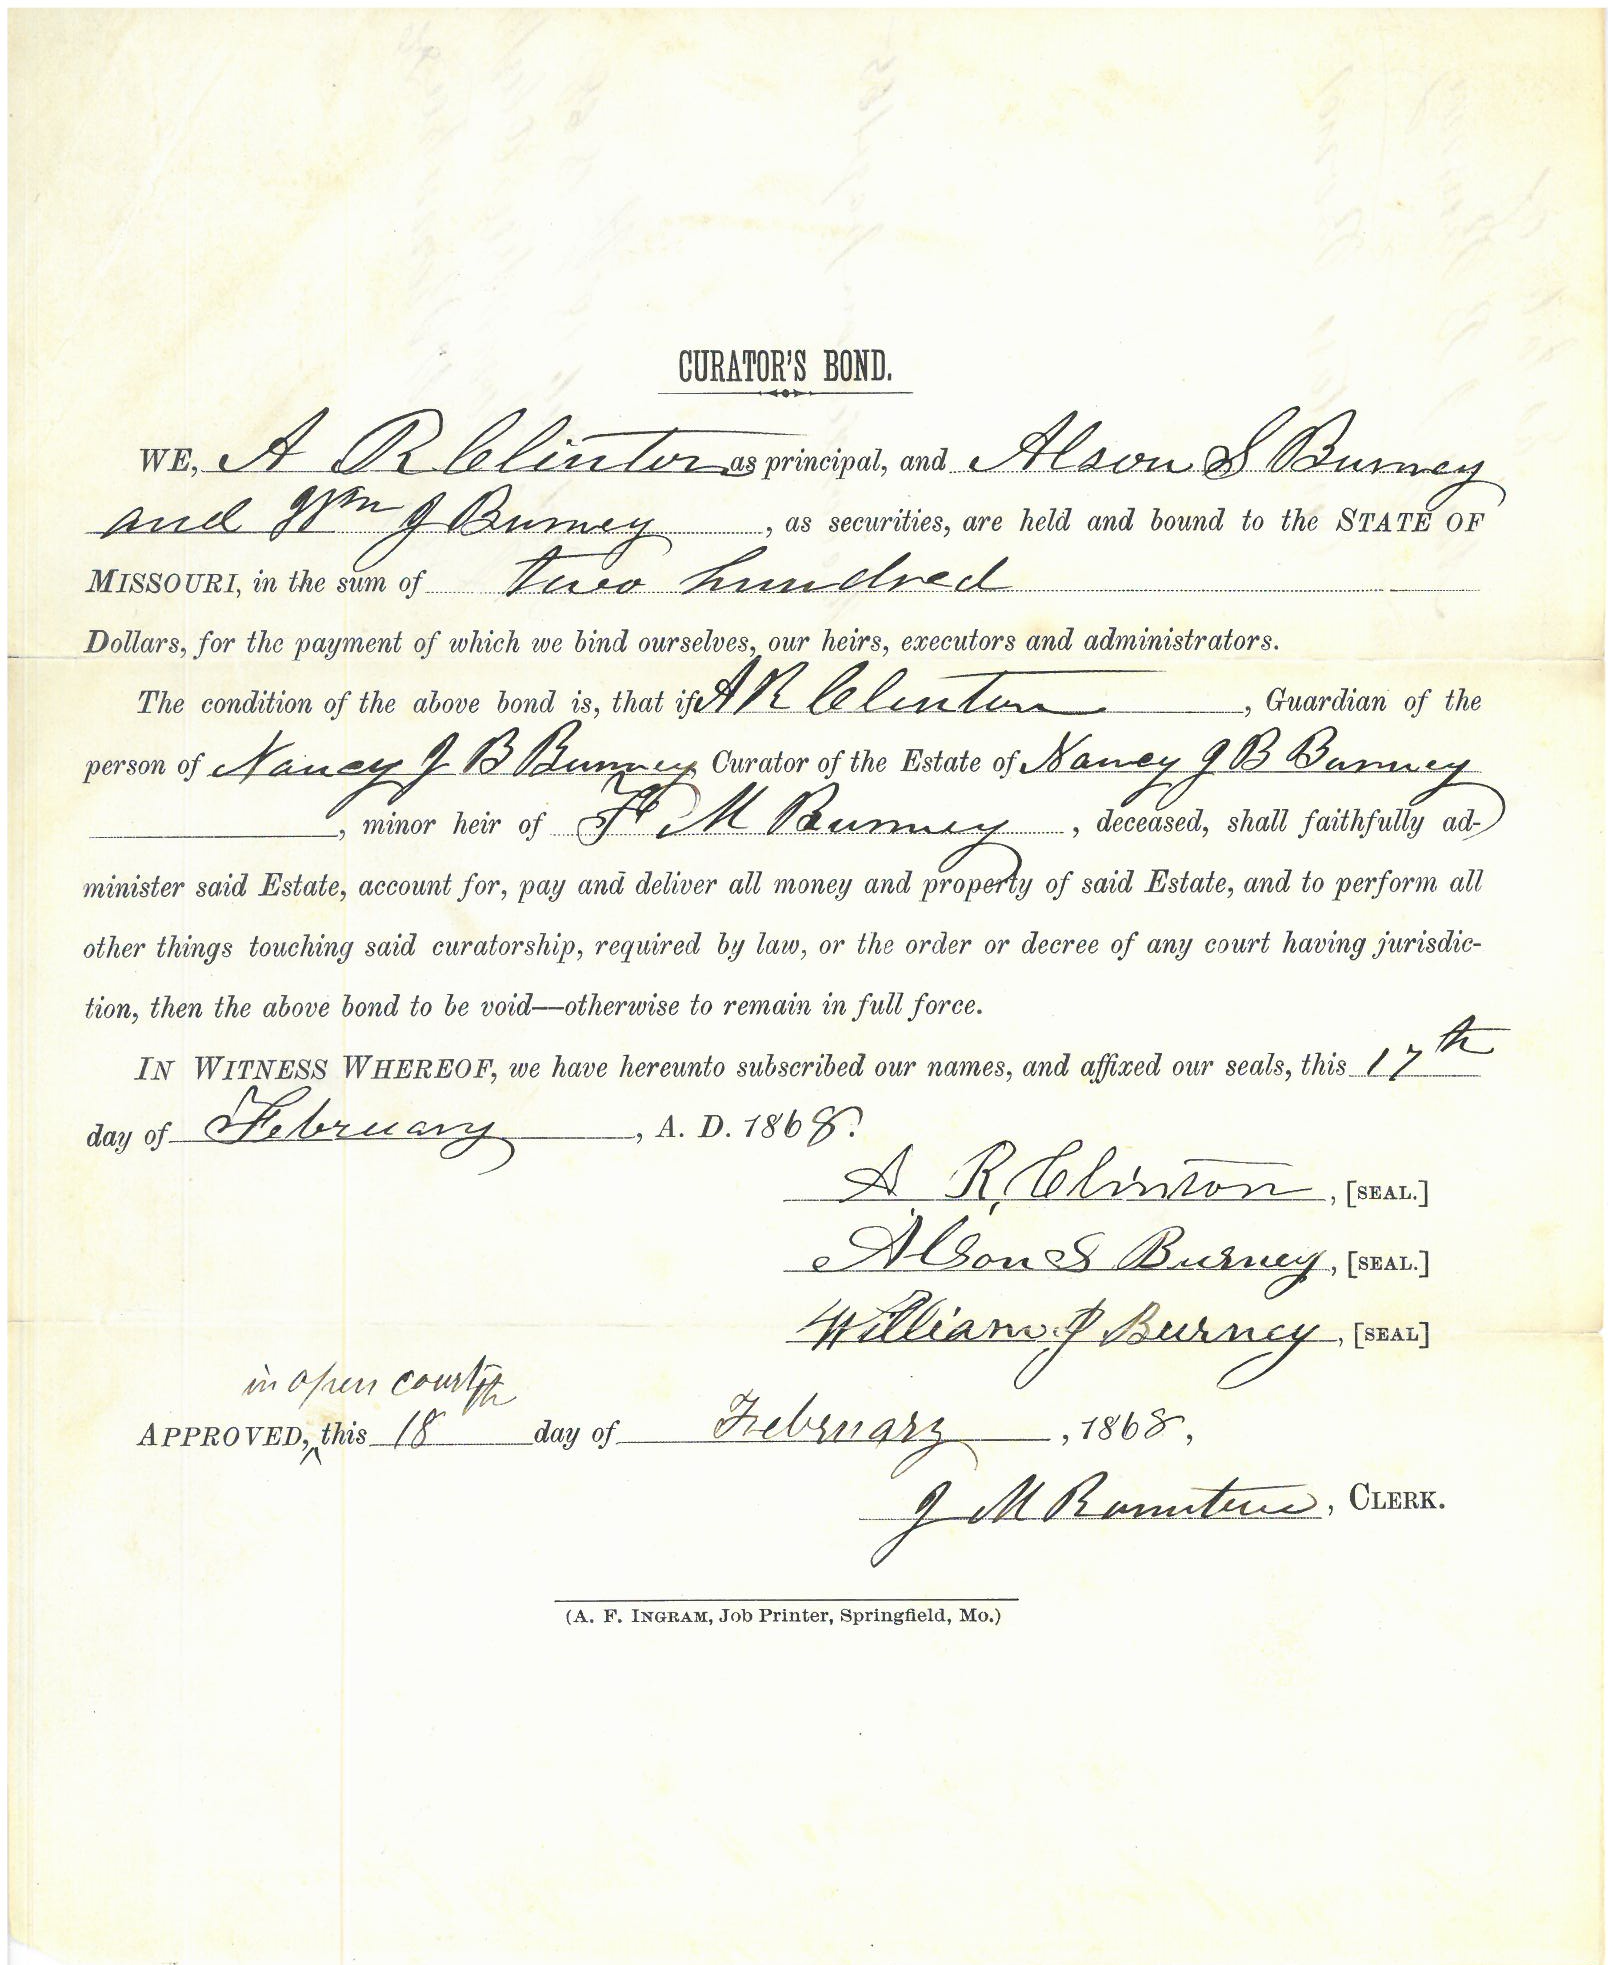 CURATOR'S BOND.
WE, A R Clinton as principal, and Alson S Burney
and Wm J Burney, as securities, are held and bound to the STATE OF
MISSOURI, in the sum of two hundred
Dollars, for the payment of which we bind ourselves, our heirs, executors and administrators.
The condition of the above bond is, that if A R Clinton, Guardian of the
person of Nancy J B Burney Curator of the Estate of Nancy J B Burney
, minor heir of F M Burney, deceased, shall faithfully ad-
minister said Estate, account for, pay and deliver all money and property of said Estate, and to perform all
other things touching said curatorship, required by law, or the order or decree of any court having jurisdic-
tion, then the above bond to be void—otherwise to remain in full force.
IN WITNESS WHEREOF, we have hereunto subscribed our names, and affixed our seals, this 17th
day of February, A. D. 1868.
A. R. Clinton, [SEAL.]
Alson S Burney, [SEAL.]
William J Burney, [SEAL]
in open court
APPROVED, ^ this 18th day of February, 1868,
J M Rountree, CLERK.
(A. F. INGRAM, Job Printer, Springfield, Mo.)